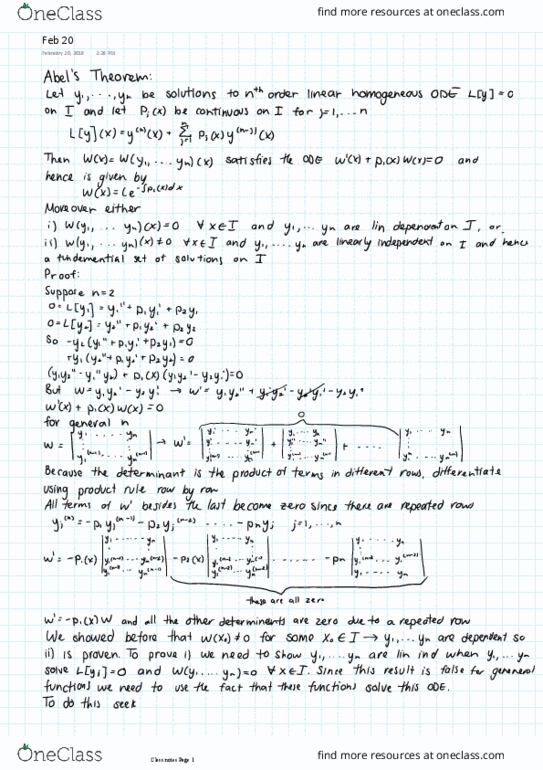 OneClass
find more resources at oneclass.com
Feb 20
February 20, 2018 2:28 PM
Abel's Theorem:
Let y₁,...,yₙ be solutions to nᵗʰ order linear homogeneous ODE L[y]=0
on I and let Pⱼ(x) be continuous on I for j=1,...n
L[y](x)=y⁽ⁿ⁾(x)+ Σ pⱼ(x)y⁽ⁿ⁻ʲ⁾(x)
Then W(x)=W(y₁,...yₙ)(x) satisfies the ODE w'(x)+p₁(x)W(x)=0 and
hence is given by
W(x)=Ce^-∫p₁(x)dx
Moreover either
i) W(y₁,...yₙ)(x)=0 ∀x∈I and y₁,...yₙ are lin dependent on I, or
ii) W(y₁,...yₙ)(x)≠0 ∀x∈I and y₁,...yₙ are linearly independent on I and hence
a fundemential set of solutions on I
Proof:
Suppose n=2
0=L[y₁]=y₁''+p₁y₁'+p₂y₁
0=L[y₂]=y₂''+p₁y₂'+p₂y₂
So -y₂(y₁''+p₁y₁'+p₂y₁)=0
+y₁(y₂''+p₁y₂'+p₂y₂)=0
(y₁y₂''-y₁''y₂)+p₁(x)(y₁y₂'-y₂y₁')=0
But w=y₁y₂'-y₂y₁' → w'=y₁y₂''+y₁'y₂'-y₂'y₁'-y₂y₁''
w'(x)+p₁(x)w(x)=0
for general n
0
w = → w' = + + .... +
Because the determinant is the product of terms in different rows, differentiate
using product rule row by row
All terms of w' besides the last become zero since there are repeated rows
yⱼ⁽ⁿ⁾=-p₁yⱼ⁽ⁿ⁻¹⁾-p₂yⱼ⁽ⁿ⁻²⁾ ..... -pₙyⱼ j=1,...,n
w'=-p₁(x) -p₂(x) ...... -pₙ
these are all zero
w'=-p₁(x)w and all the other determinants are zero due to a repeated row
We showed before that W(x₀)≠0 for some x₀∈I → y₁,...yₙ are dependent so
ii) is proven. To prove i) we need to show y₁,...yₙ are lin ind when y₁,...yₙ
solve L[yⱼ]=0 and W(y₁,...yₙ)=0 ∀x∈I. Since this result is false for general
functions we need to use the fact that these functions solve this ODE.
To do this seek
OneClass
Class notes Page 1
find more resources at oneclass.com